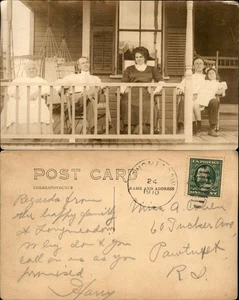 POST CARD
CORRESPONDENCE
NAME AND ADDRESS
24
1910
Regards from
the happy family
at Longmeadow
Why don't you
call on us as you
promised
Harry
Miss A.
60 Tucker Ave
Pawtuxet
R.I.